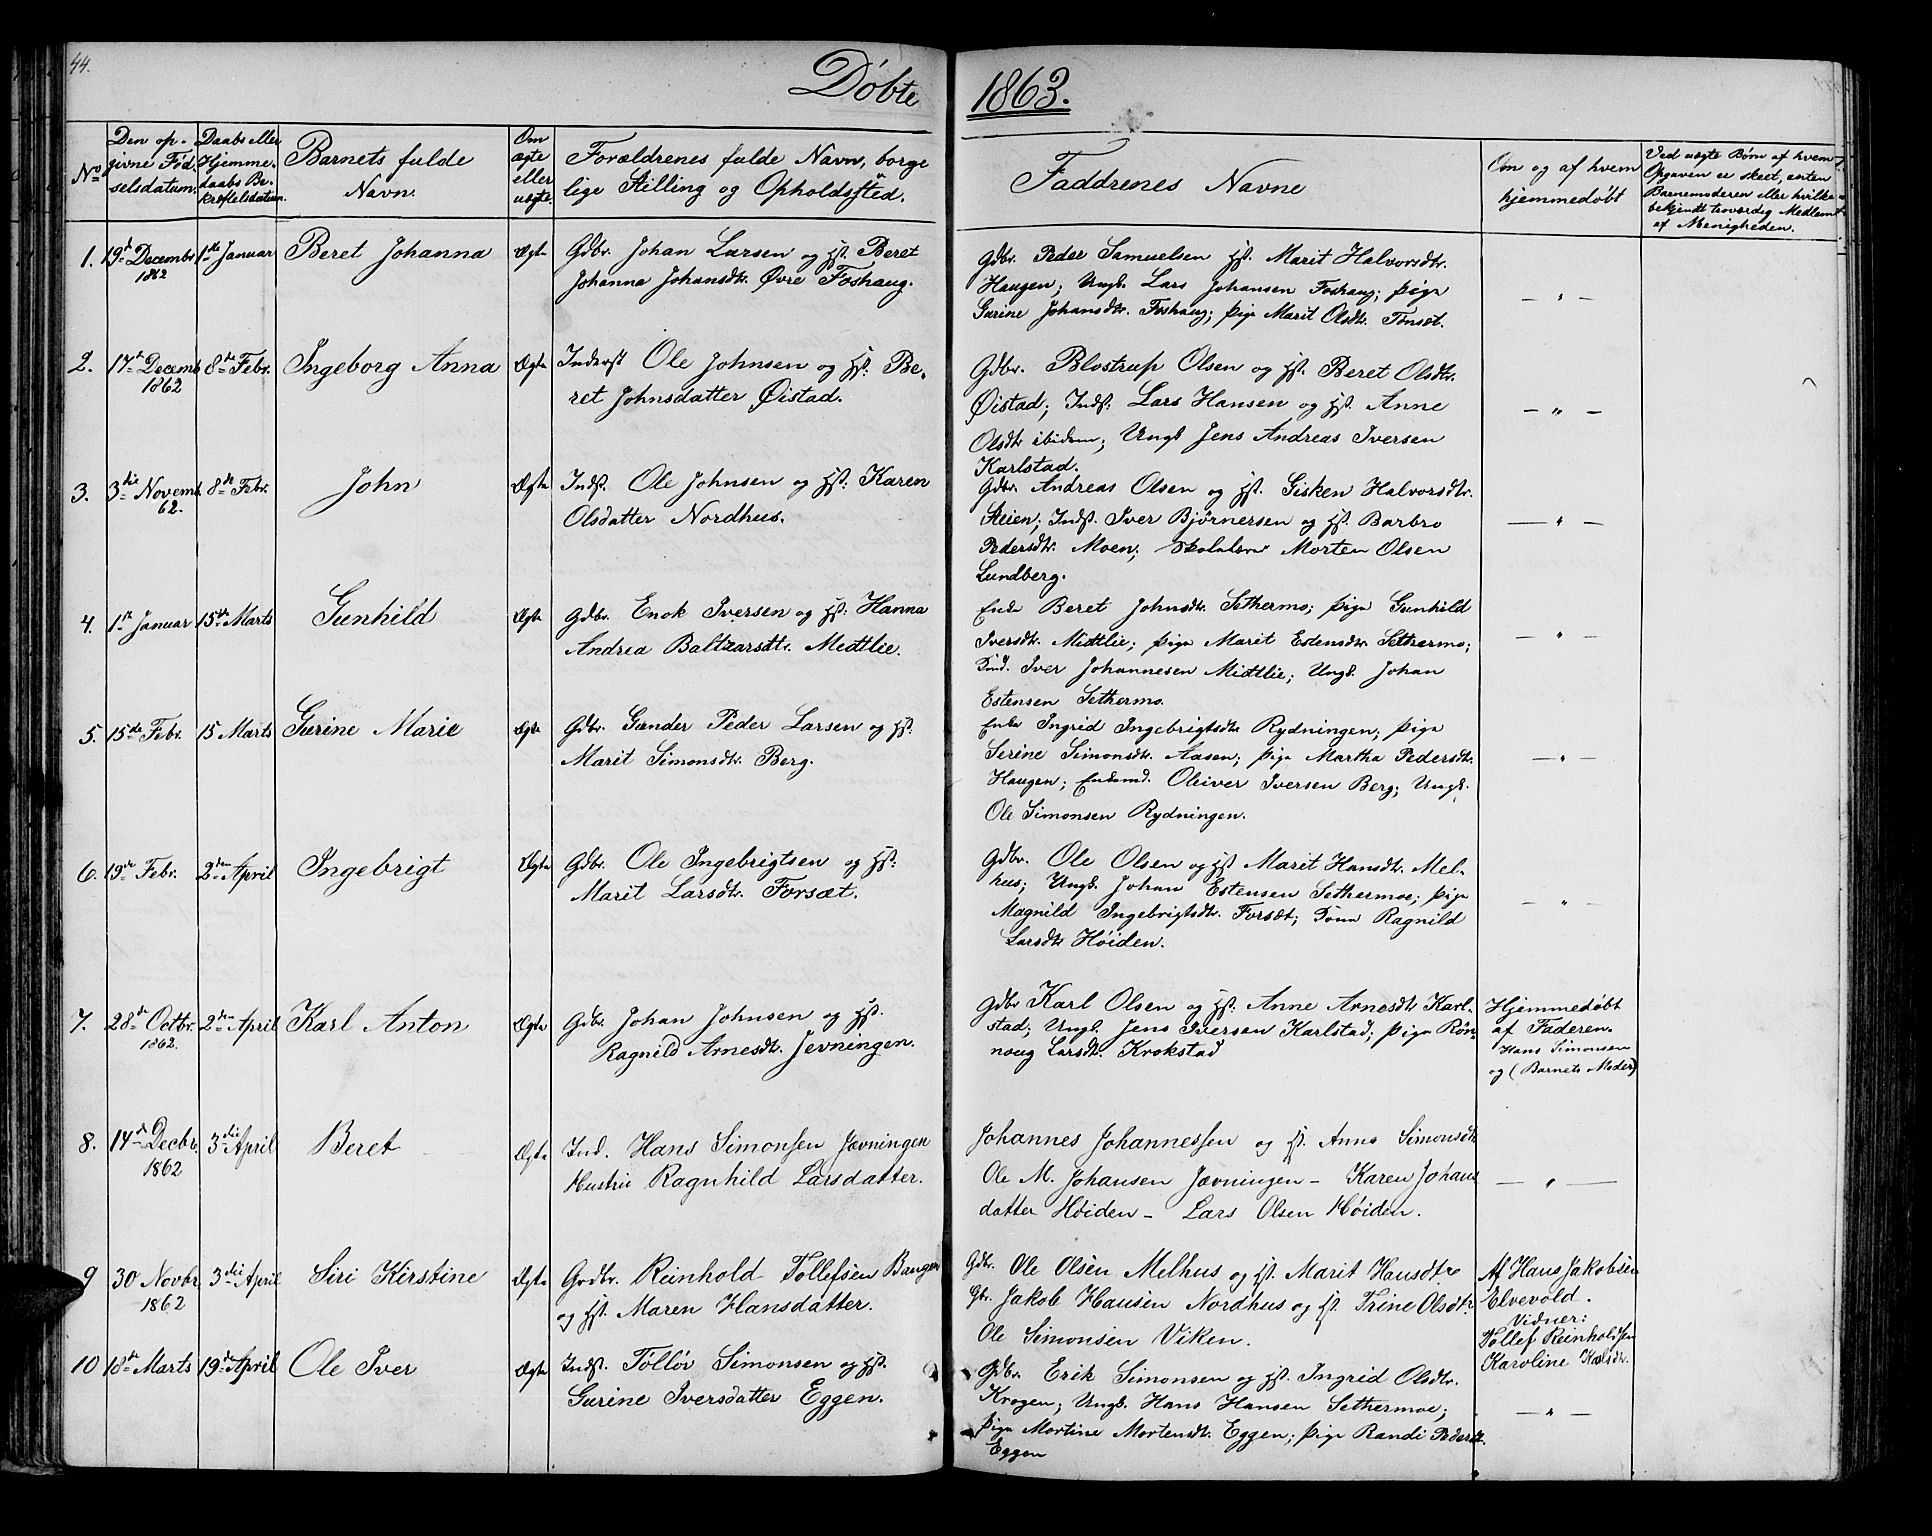 44.
Døbte 1863.
No
Den op-
givne Fød
selsdatum.
Daabs eller
Hjemme-
daabs Be-
kræftelsdatum.
Barnets fulde
Navn.
Om
ægte
eller
uægte.
Forældrenes fulde Navn, borge
lige Stilling og Opholdssted.
Faddrenes Navne
Om og af hvem
hjemmedøbt
Ved uægte Børn af hvem
Opgaven er skeet, enten
Barnemoderen eller hvilke
bekjendt troværdig Medlem
af Menigheden.
1. 19de Decembr 1ste Januar Beret Johanna Ægte Gdbr. Johan Larsen og Hst. Beret
1862
Johanna Johansdtr. Øvre Foshaug.
Gdbr. Peder Samuelsen Hst. Marit Halvorsdtr.
Haugen; Ungk. Lars Johansen Foshaug; Pige
Gurine Johansdtr. Foshaug; Pige Marit Olsdtr. Tønset.
— " —
2. 17de Decemb 8de Febr. Ingeborg Anna Ægte Inderst Ole Johnsen og Hst. Be-
1862
ret Johnsdatter Øistad.
Gdbr. Blostrup Olsen og Hst. Beret Olsdtr.
Øistad; Indst. Lars Hansen og Hst. Anne
Olsdtr ibidem; Ungk Jens Andreas Iversen
Karlstad.
— " —
3. 3die Novemb. 8de Febr. John Ægte Indst. Ole Johnsen og Hst. Karen
62.
Olsdatter Nordhus.
Gdbr. Andreas Olsen og Hst. Gisken Halvorsdtr.
Steien; Indst. Iver Bjørnersen og Hst. Barbro
Pedersdtr. Moen; Skolelærer Morten Olsen
Lundberg.
— " —
4. 1ste Januar 15de Marts Gunhild Ægte Gdbr. Enok Iversen og Hst. Hanna
Andrea Baltzarsdtr. Medtlie.
Enke Beret Johnsdtr. Sethermo; Pige Gunhild
Iversdtr. Midtlie; Pige Marit Estensdtr. Sethermo;
Ind. Iver Johannesen Midtlie; Ungk. Johan
Estensen Sethermo.
— " —
5. 15de Febr. 15 Marts Gurine Marie Ægte Gdbr. Gunder Peder Larsen og Hst.
Marit Simonsdtr. Berg.
Enke Ingrid Ingebrigtsdtr. Rydningen; Pige
Serine Simonsdtr. Aasen; Pige Martha Pedersdtr.
Haugen; Enkemd. Oleiver Iversen Berg; Ungk.
Ole Simonsen Rydningen.
— " —
6. 19de Febr. 2den April Ingebrigt Ægte Gdbr. Ole Ingebrigtsen og Hst.
Marit Larsdtr. Forsæt.
Gdbr. Ole Olsen og Hst Marit Hansdtr. Mel-
hus; Ungk. Johan Estensen Sethermoe; Pige
Magnild Ingebrigtsdtr. Forsæt; Ragnild
Larsdtr Høiden.
— " —
7. 28de Octbr. 2den April Karl Anton Ægte Gdbr. Johan Johnsen og Hst.
1862.
Ragnild Arnesdtr. Jevningen.
Gdbr Karl Olsen og Hst. Anne Arnesdtr Karl-
stad; Ungk. Jens Iversen Karlstad; Pige Røn-
noug Larsdtr. Krokstad
Hjemmedøbt
af Faderen.
Hans Simonsen
og (Barnets Moder)
8. 14de Decbr. 3die April Beret Ægte Ind. Hans Simonsen Jævningen
1862
Hustru Ragnhild Larsdatter.
Johannes Johannessen og Hst. Anne Simonsdtr
Ole M. Johansen Jævningen — Karen Johans
datter Høiden — Lars Olsen Høiden.
— " —
9 30 Novbr 3die April Siri Kirstine Ægte Grdbr. Reinhold Tollefsen Bangen
1862
og Hst. Maren Hansdatter.
Gdbr. Ole Olsen Melhus og Hst. Marit Hansdtr
Gbr. Jakob Hansen Nordhus og Hst. Trine Olsdtr
Ole Simonsen Viken.
Af Hans Jakobsen
Elvevold.
Vidner:
Tollef Reinholdsen
Karoline Karlsdtr.
10 18de Marts 19de April Ole Iver Ægte Indst. Tølløv Simonsen og Hst.
Gurine Iversdatter Eggen.
Gdbr. Erik Simonsen og Hst. Ingrid Olsdtr.
Krogen; Ungk. Hans Hansen Sethermoe;
Pige Mortine Mortensdtr. Eggen; Pige Randi Pedersdtr.
Eggen
— " —